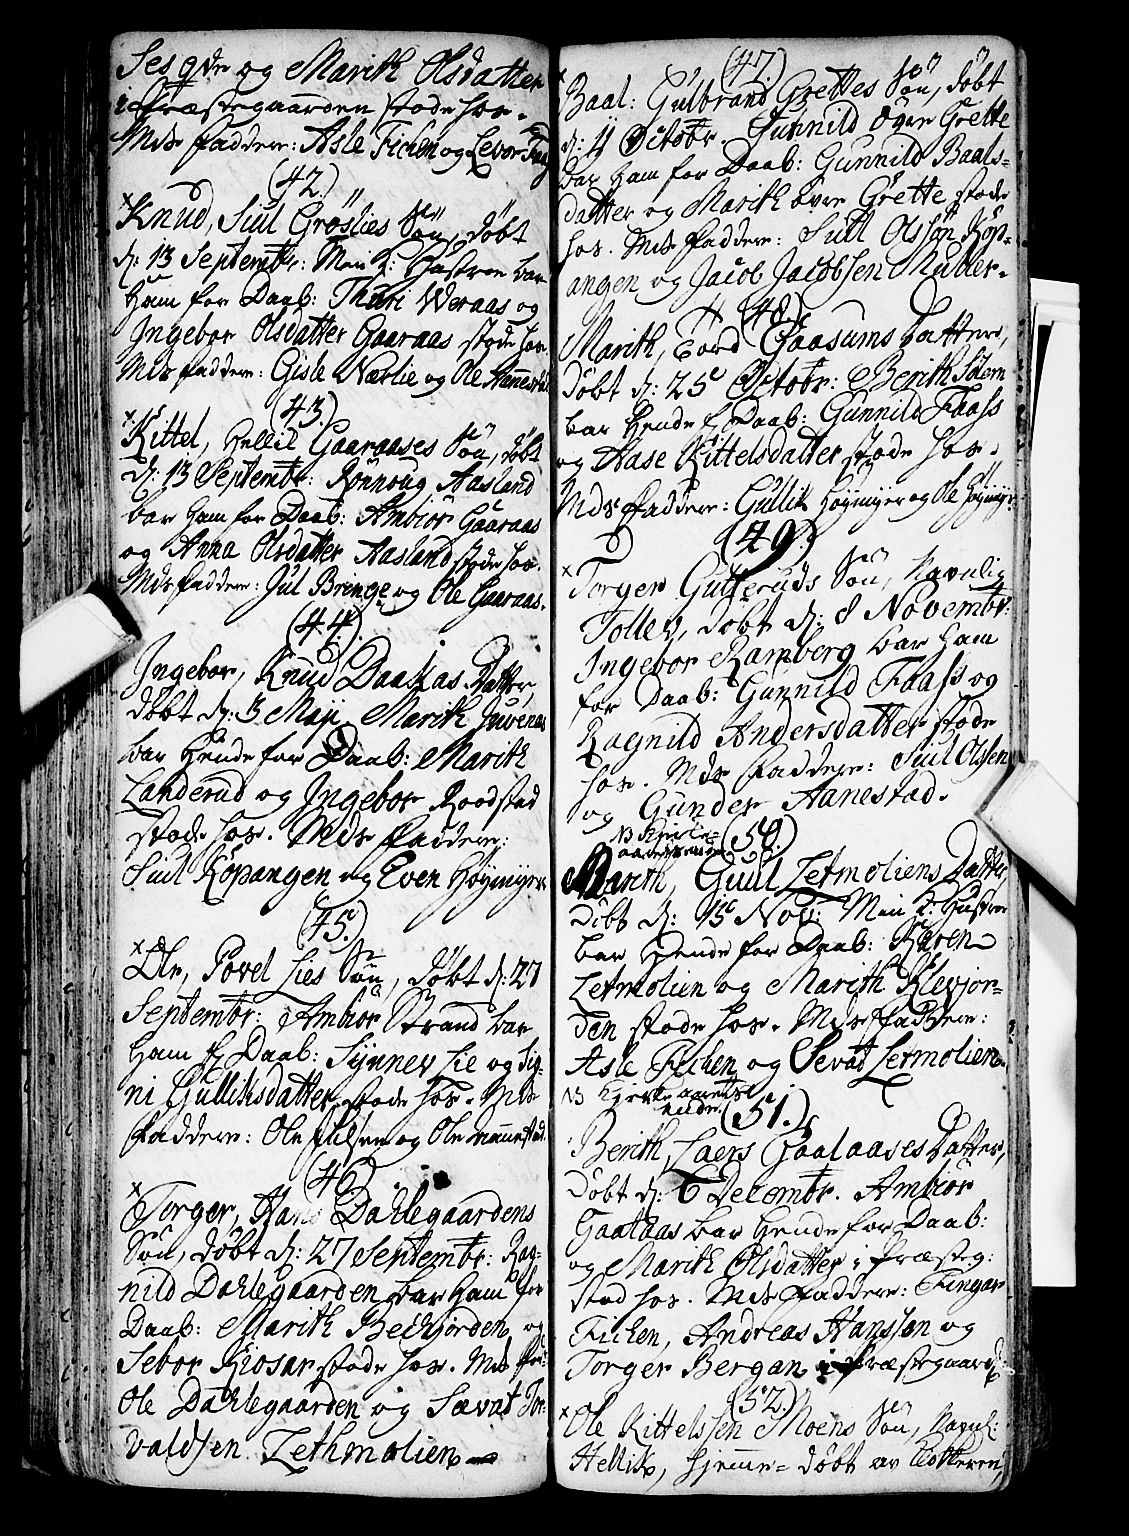 og Marith Olsdatter
i Præstegaarden stode hos.
Mds Faddere: Asle Fichen og Levor
(42.)
Knud, Siul Gröslies Sön, döbt
d: 13 Septembr: Min K: Hustroe bar
Ham for Daab: Thuri Weraas og
Ingebor Olsdatter Gaaraas stode hos.
Mds Faddere: Gisle Nærlie og Ole
(43.)
Kittel, Hellik Gaaraases Sön, döbt
d: 13 Septembr: Rönnoug Aasland
bar Ham for Daab: Ambior Gaaraas
og Anna Olsdatter Aasland stode hos.
Mds Faddere: Jul Bringe og Ole Gaaraas.
(44.)
Ingebor, Knud Daaskas Datter,
döbt d: 3 Maji Marith
bar Hende for Daab: Marith
Landerud og Ingebor Roodstad
stode hos. Mds Faddere:
Siul Köpangen og Even Höymyer
(45.)
Ole, Povel Lies Sön, döbt d: 27
Septembr: Ambior Strand bar
Ham f Daab: Synnev Lie og Sig-
ni Gulliksdatter stode hos. Mds
Faddere: Ole Nilsen og Ole
(46)
Torger, Hans Dahlegaardens
Sön, döbt d: 27 Septembr: Rag-
nild Dahlegaarden bar Ham for
Daab: Marith Beckjorden og
Sebor Kiosar stode hos. Mds
Ole Dahlegaarden og Sævat Tor-
valdsen Lethmolien
(47.)
Baal: Gulbrand Grettes Sön, döbt
d: 11 Octobr. Gunnild övre Grette
bar Ham for Daab: Gunnild Baals-
datter og Marith övre Grette stode
hos. Mds Faddere: Siul Olssön Köp-
angen og Jacob Jacobsen Muller.
(48.)
Marith, Tord Gaasums Datter,
döbt d: 25 Octobr: Berith
bar Hende f Daab: Gunnild Faass
og Aase Kittelsdatter stode hos.
Mds Faddere: Gullik Höymyer og Ole Höymyr:
(49.)
Torger Gulleruds Sön, Navnlig
Tollev, döbt d: 8 Novembr:
Ingebor Ramberg bar Ham
for Daab: Gunnild Faass og
Ragnild Andersdatter stode
hos. Mds Faddere: Siul Olssen
og Gunder Aanestad.
(50.)
Marith, Guul Letmoliens Datter,
döbt d: 15 Nov: Min K: Hustroe
bar Hende for Daab: Karen
Letmolien og Marith Klevjor-
den stode hos. Mds Faddere:
Asle Fichen og Sevat Letmolien.
(51.)
Berith, Laers Gaalaases Datter,
döbt d: 6 Decembr. Ambior
Gaalaas bar Hende for Daab:
og Marith Olsdatter i Præsteg:
stod hos. Mds Faddere: Fingar
Fichen, Andreas Hanssen og
Torger Bergan i Præstegaard:
(52)
Ole Kittelssen Moens Sön, Navnl:
Hellik, hjemme-döbt av Klokkeren,